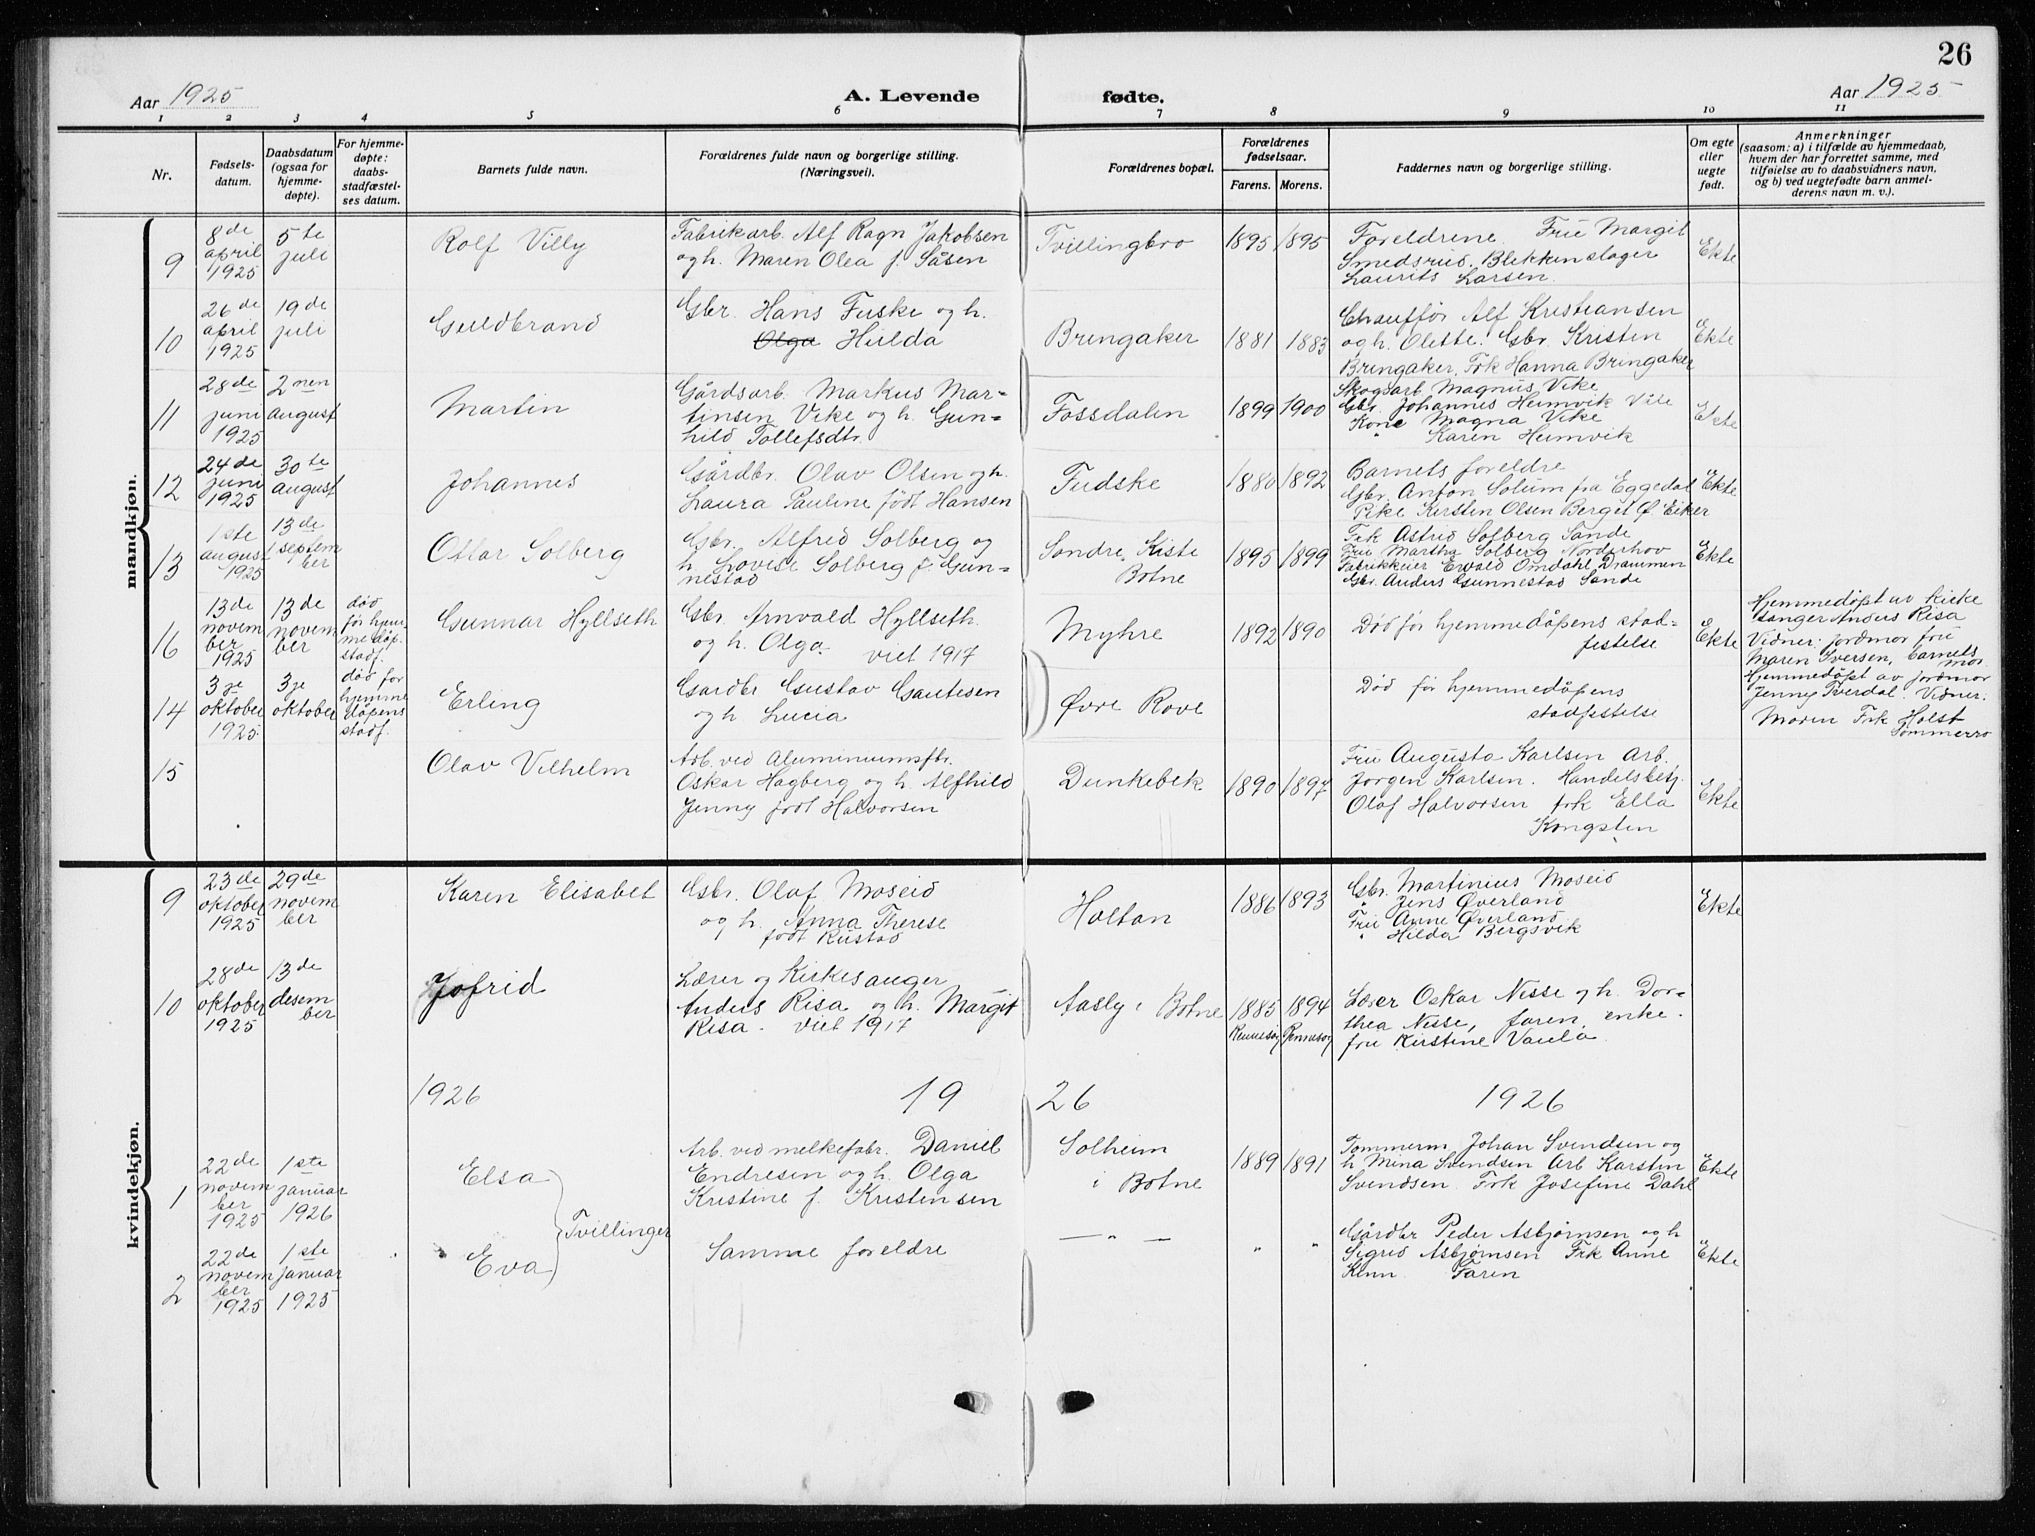 26
Aar 1925
A. Levende
fødte.
Aar 1925
1 2 3 4 5 6 7 8 9 10 11
Nr.
Fødsels-
datum.
Daabsdatum
(ogsaa for
hjemme-
døpte).
For hjemme-
døpte:
daabs-
stadfæstel-
ses datum.
Barnets fulde navn.
Forældrenes fulde navn og borgerlige stilling.
(Næringsvei).
Forældrenes bopæl.
Forældrenes
fødselsaar.
Farens. Morens.
Faddernes navn og borgerlige stilling.
Om egte
eller
uegte
født.
Anmerkninger
(saasom: a) i tilfælde av hjemmedaab,
hvem der har forrettet samme, med
tilføielse av to daabsvidners navn,
og b) ved uegtefødte barn anmel-
derens navn m. v.).
mandkjøn.
9
8de
april
1925
5te
juli
Rolf Villy
Fabrikarb. Alf Ragn Jakobsen
og h. Maren Olea f. Såsen
Tvillingbro
1895 1895
Foreldrene. Frü Margit
Smedsrud. Blekkenslager
Laurits Larsen
Ekte
10
26de
april
1925
19de
juli
Guldbrand
Gbr. Hans Fuske og h.
Olga Hilda
Bringaker
1881 1883
Chauffør Alf Kristiansen
og h. Olette. Gbr. Kristen
Bringaker, Frk Hanna Bringaker
Ekte
11
28de
juni
1925
2nen
august
Martin
Gårdsarb. Markus Mar-
tinsen Vike og h. Gun-
hild Tollefsdtr.
Fossdalen
1899 1900
Skogsarb. Magnus Vike
Gbr. Johannes Heimvik Vile
Kone Magna Vike
" Karen Heimvik
Ekte
12
24de
juni
1925
30te
august
Johannes
Gårdbr. Olav Olsen og h.
Laura Pauline født Hansen
Fudske
1880 1892
Barnets foreldre
Gbr. Anton Solum fra Eggedal
Pike Kirsten Olsen Berget Ø. Eiker
Ekte
13
1ste
august
1925
13de
septem
ber
Ottar Solberg
Gbr. Alfred Solberg og
h. Lovise Solberg f. Gun-
nestad
Søndre Kiste
Botne
1895 1899
Frk Astrid Solberg Sande
Fru Martha Solberg Norderhov
Fabrikkeier Ewald Omdahl, Drammen
Gbr. Anders Gunnestad Sande
Ekte
16
13de
novem
ber
1925
13de
novem
ber
død
før hjem-
medåp.
stadf.
Gunnar Hyllseth
Gbr. Arnvald Hyllseth
og h. Olga. viet 1917
Myhre
1892 1890
Død før hjemmedåpens stad-
festelse
Ekte
Hjemmedøpt av kirke
sanger Anders Risa
Vidner: jordmor frü
Maren Iversen, barnets
mor.
14
3je
oktober
1925
3je
oktober
død før
hjemme
dåpens
stadf.
Erling
Gardbr Gustav Gautesen
og h. Lucia
Øvre Rove
Død før hjemmedåpens
stadfestelse
Hjemmedøpt av jordmor
Jenny Tverdal. Vidner:
Moren Frk Holst
Sommerro
15
Olav Vilhelm
Arb. ved Aluminiumsfbr.
Oskar Hagberg og h. Alfhild
Jenny født Halvorsen
Dunkebek
1890 1897
Fru Augusta Karlsen Arb.
Jørgen Karlsen. Handelsbetj.
Olaf Halvorsen frk Ella
Kongsten
Ekte
kvindekjøn.
9
23de
oktober
1925
29de
novem
ber
Karen Elisabet
Gbr. Olaf Moseid
og h. Anna Therese
født Rustad
Holtan
1886 1893
Gbr. Martinius Moseid
" Jens Øverland
Fru Anne Øverland
" Hilda Bergsvik
Ekte
10
28de
oktober
1925
13de
desem
ber
Jofrid
Lærer og Kirkesanger
Anders Risa og h. Margit
Risa. viet 1917
Aasly i Botne
1885 1894
Rennesøy Rennesøy
Lærer Oskar Nesse og h. Dor-
thea Nesse, faren, enke-
fru Kirstine Vaula
1926
19
26
1926
1
22de
novem
ber
1925
1ste
januar
1926
Elsa
Tvillinger
Arb. ved melkefabr. Daniel
Endresen og h. Olga
Kristine f. Kristensen
Solheim
i Botne
1889 1891
Tømmerm Johan Svendsen og
h. Mina Svendsen Arb Karsten
Svendsen. Frk Josefine Dahl
Ekte
2
22de
novem
ber
1925
1ste
januar
1925
Eva
Samme foreldre
— " —
" "
Gårdbr Peder Asbjørnsen og h
Sigrid Asbjørnsen Frk Anne
Kenn Faren
Ekte